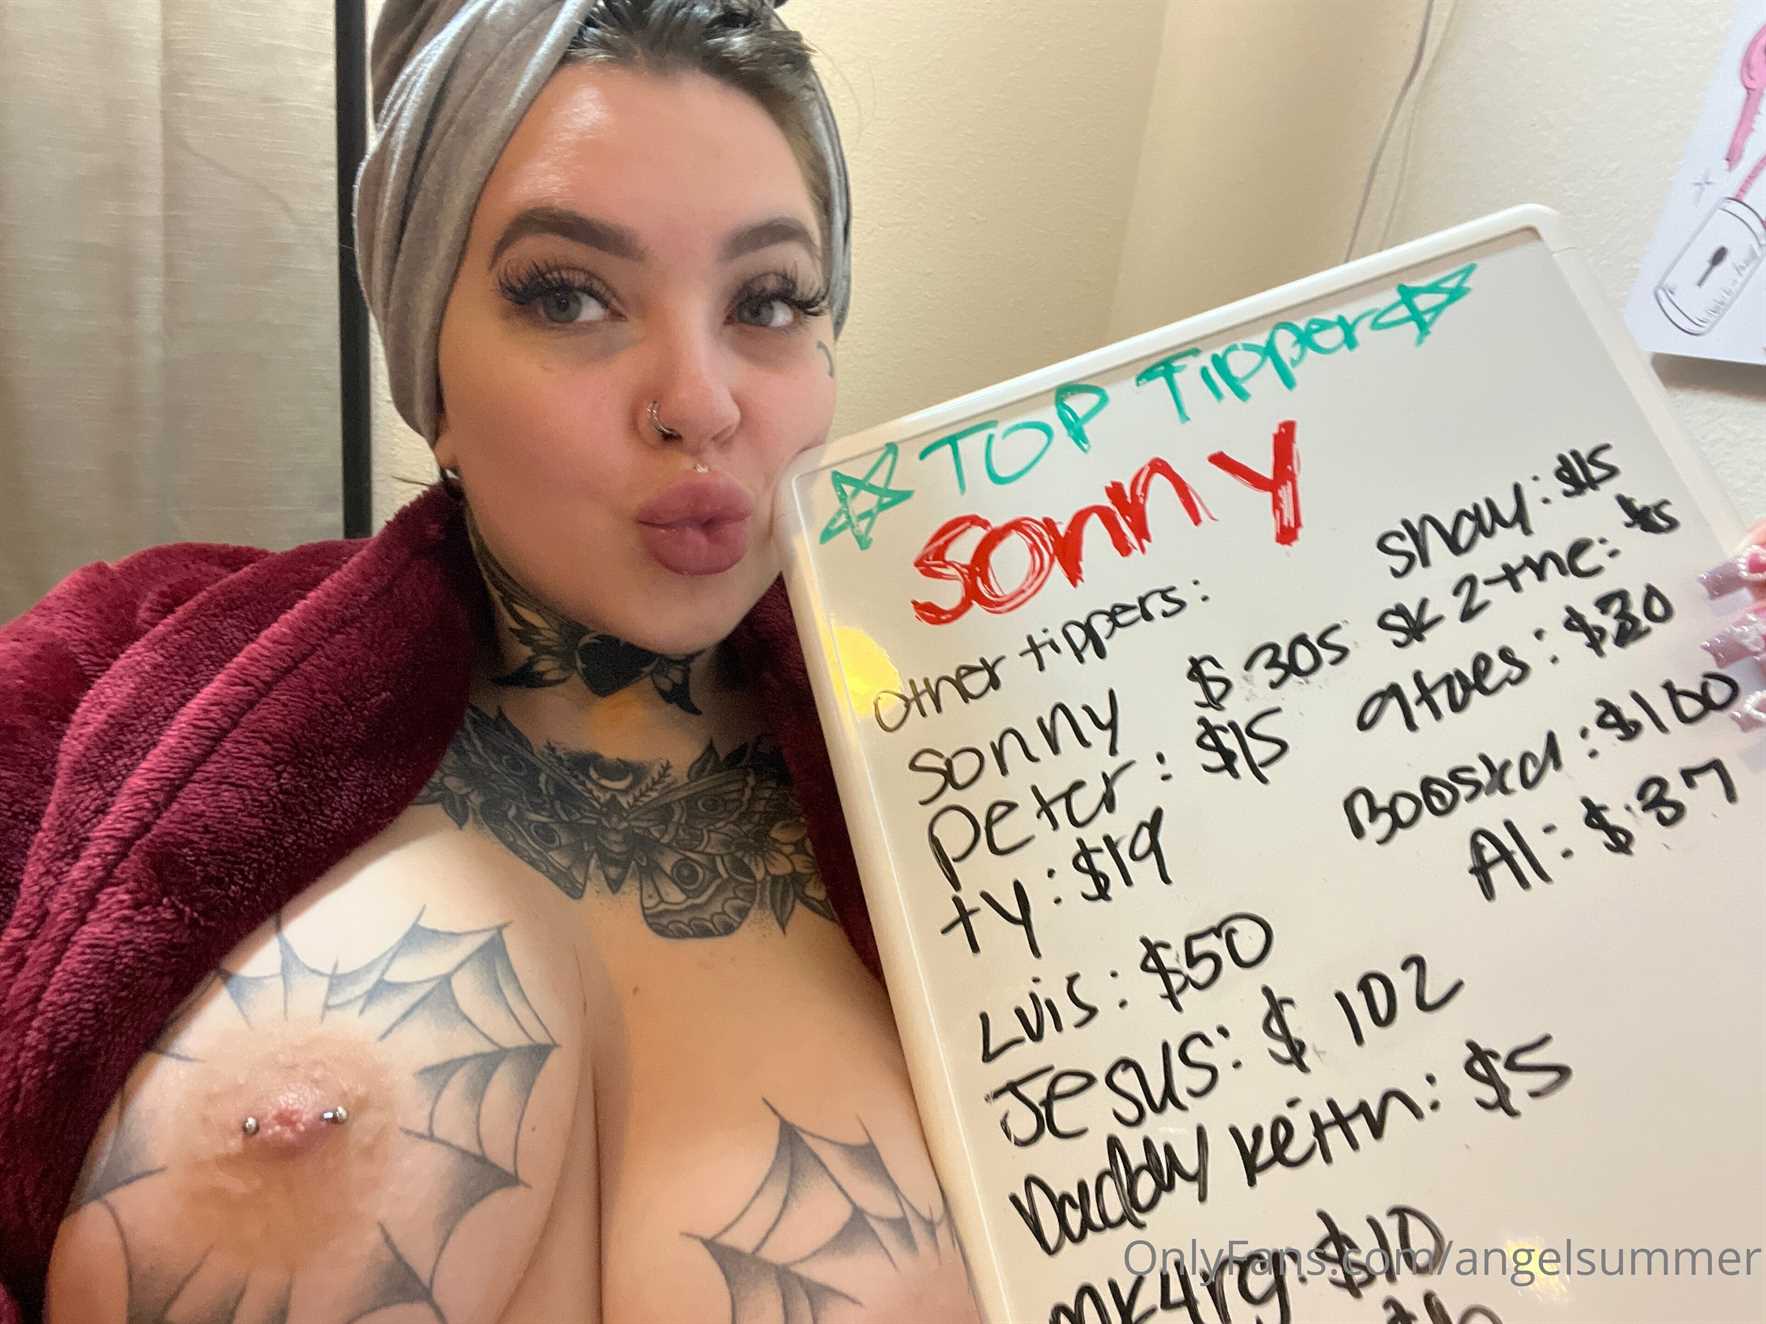 TOP Tipper
Sonny
Other tippers:
Sonny $305
Peter: $15
ty: $19
Luis: $50
Jesus: $102
Daddy Keith: $5
mk4rg: $10
Shay: $15
SK2the: $5
9toes: $20
Al: $37
OnlyFans.com/angelsummer